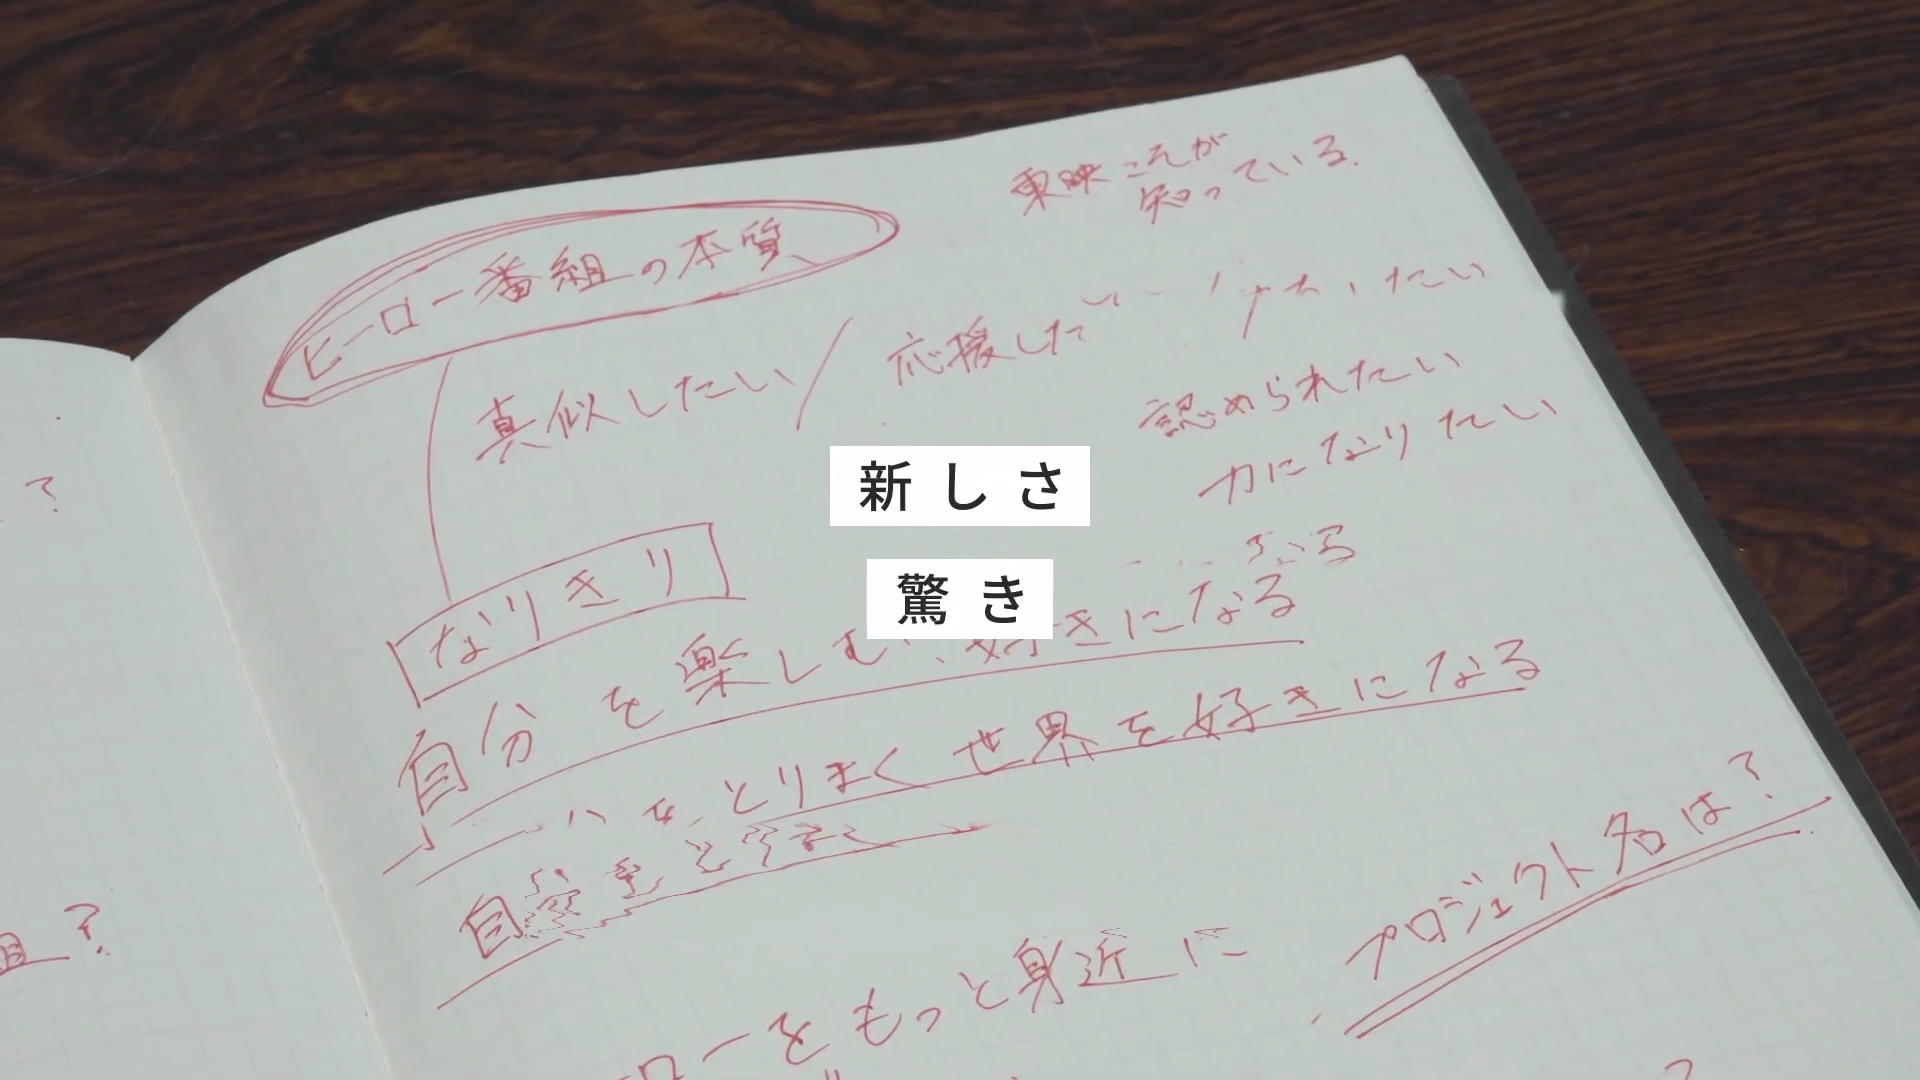 東映これが
知っている.
ヒーロー番組の本質
真似したい/応援した
たい
認められたい
力になりたい
新しさ
驚き
なりきり
なる
自分を楽しむ、好きになる
をとりまく世界を好きになる
自分をと
プロジェクト名は?
ローをもっと身近に
?
組?
?